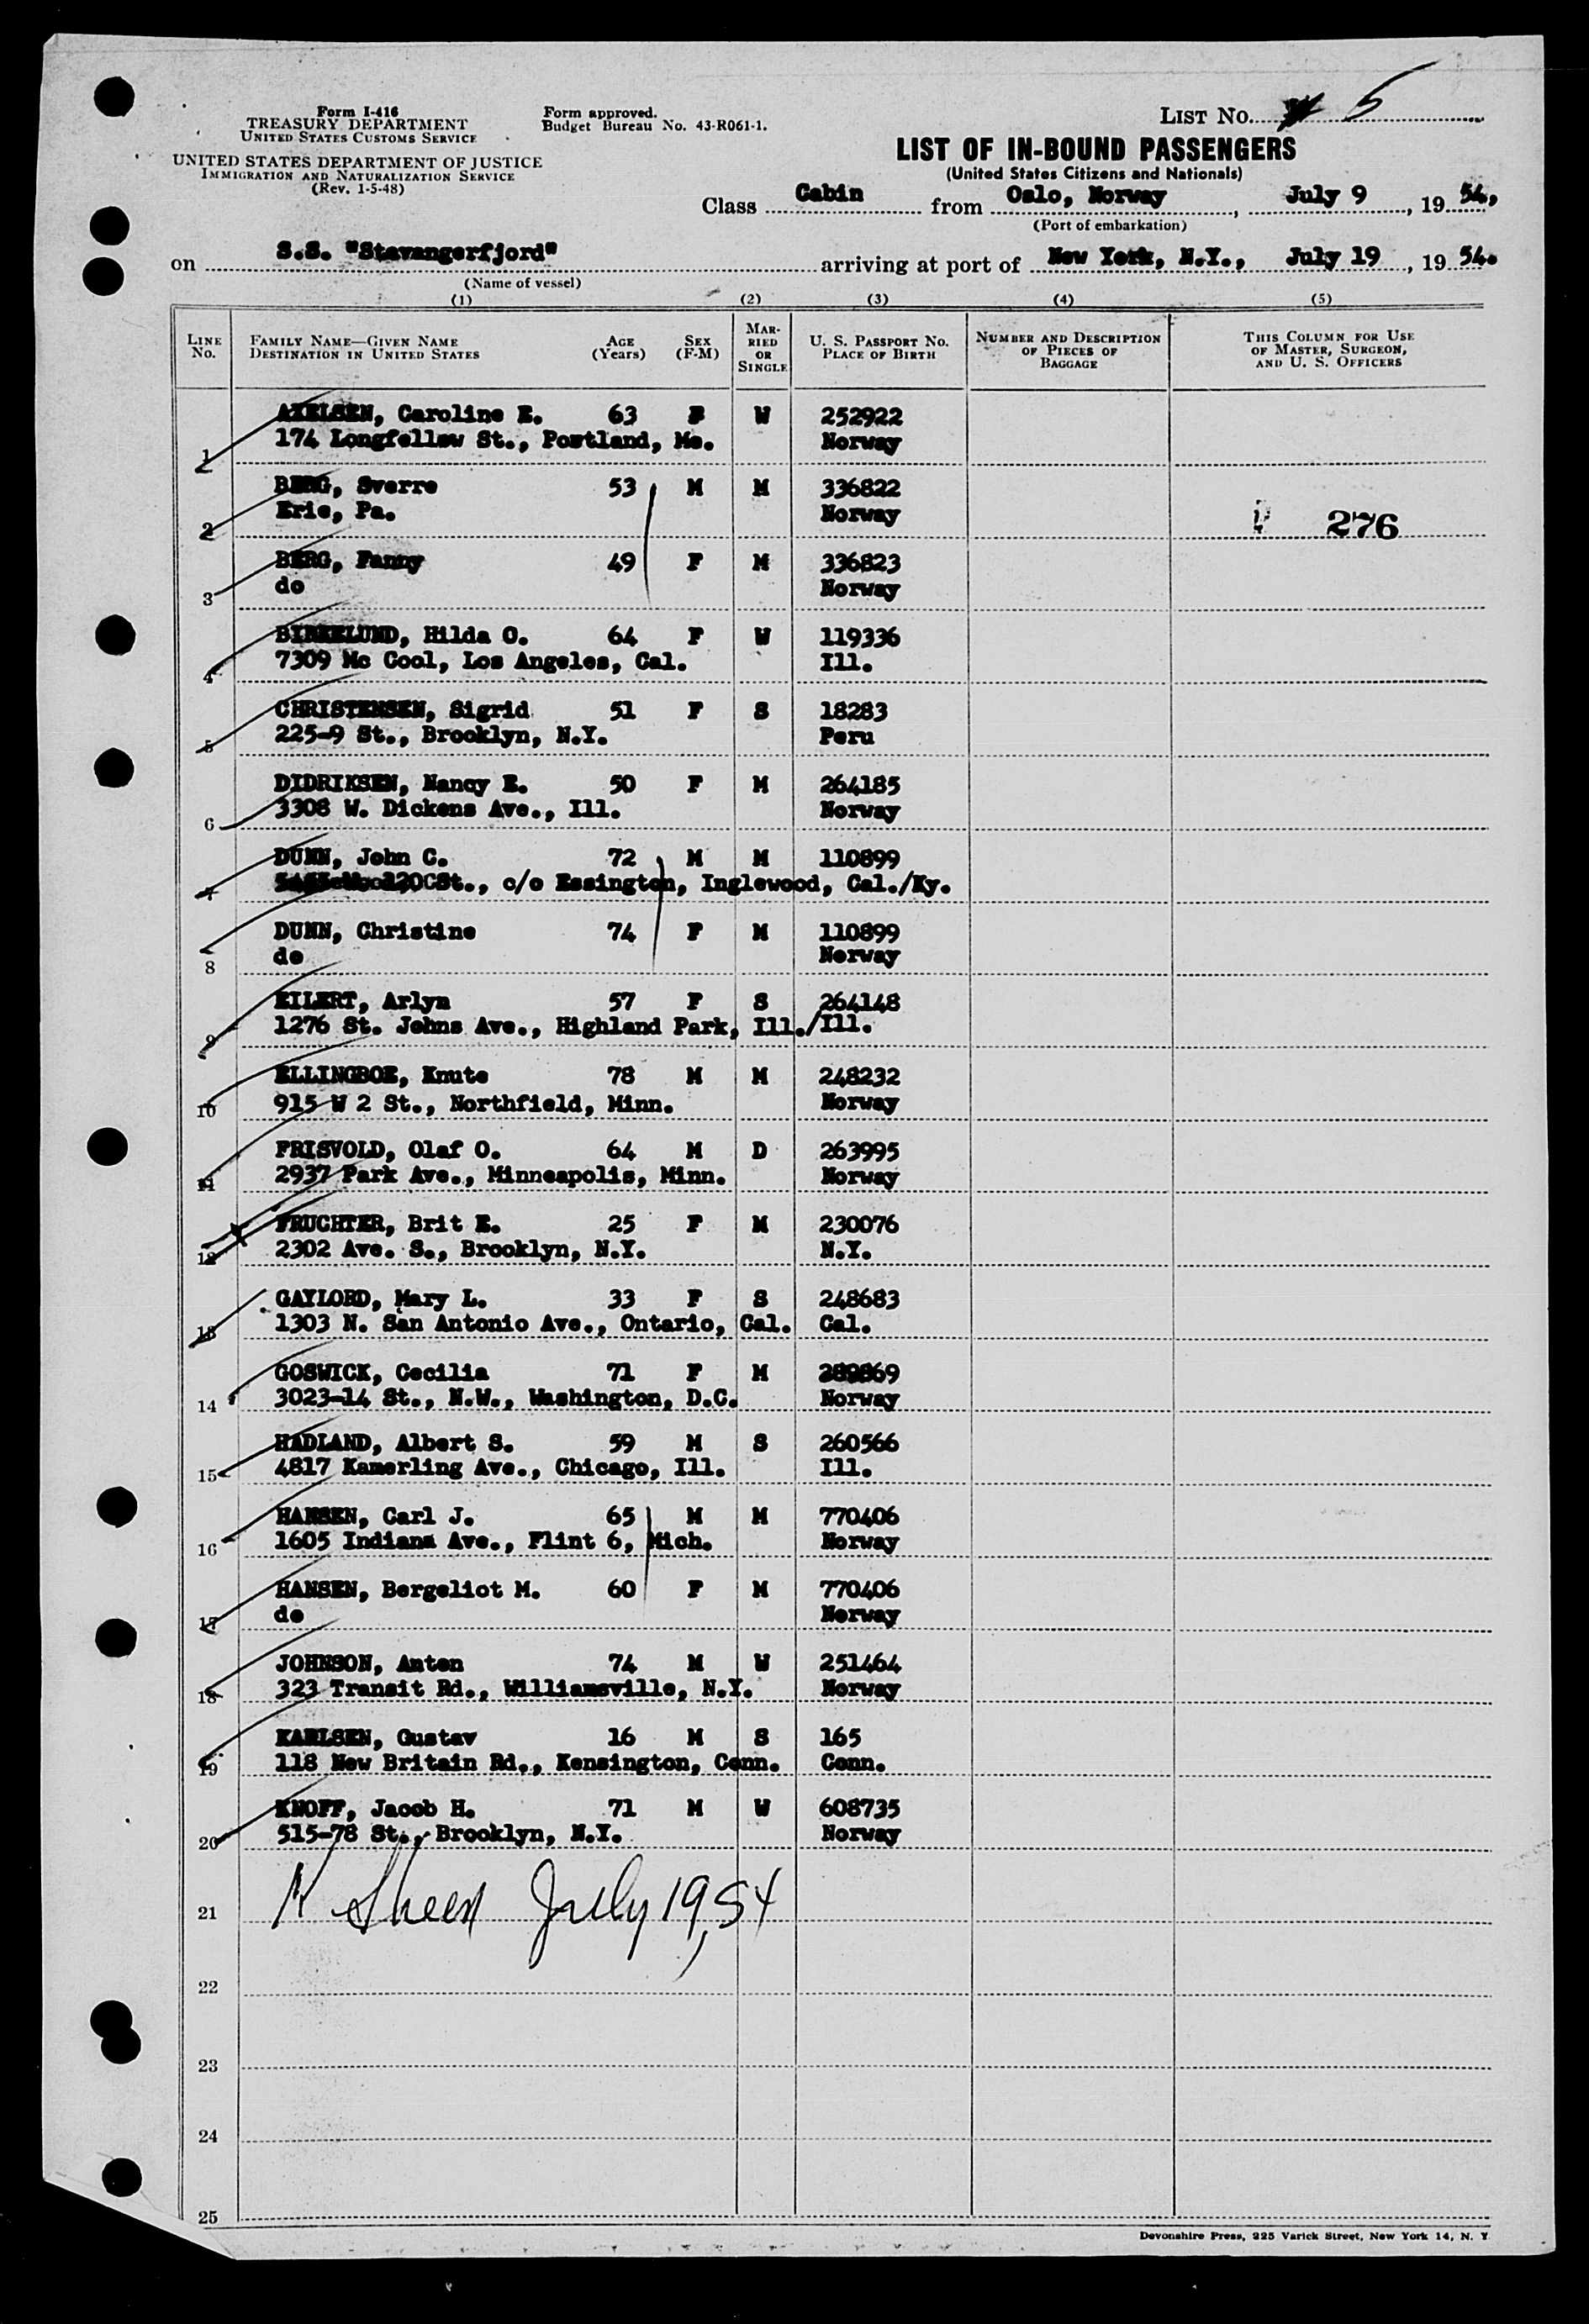 Form I-416
TREASURY DEPARTMENT
UNITED STATES CUSTOMS SERVICE
UNITED STATES DEPARTMENT OF JUSTICE
IMMIGRATION AND NATURALIZATION SERVICE
(Rev. 1-5-48)
Form approved.
Budget Bureau No. 43-R061-1.
LIST No. 5
LIST OF IN-BOUND PASSENGERS
(United States Citizens and Nationals)
Class Cabin from Oslo, Norway, July 9, 19 54,
(Port of embarkation)
on S.S. "Stavangerfjord" arriving at port of New York, N.Y., July 19, 19 54.
(Name of vessel)
(1) (2) (3) (4) (5)
LINE No. FAMILY NAME—GIVEN NAME DESTINATION IN UNITED STATES AGE (Years) SEX (F-M) MARRIED OR SINGLE U. S. PASSPORT No. PLACE OF BIRTH NUMBER AND DESCRIPTION OF PIECES OF BAGGAGE THIS COLUMN FOR USE OF MASTER, SURGEON, AND U. S. OFFICERS
AXELSEN, Caroline E. 63 F W 252922
1 174 Longfellow St., Portland, Me. Norway
BERG, Sverre 53 M M 336822
2 Erie, Pa. Norway 276
BERG, Fanny 49 F M 336823
3 do Norway
BIRKELUND, Hilda O. 64 F W 119336
4 7309 Mc Cool, Los Angeles, Cal. Ill.
CHRISTENSEN, Sigrid 51 F S 18283
5 225-9 St., Brooklyn, N.Y. Peru
DIDRIKSEN, Nancy E. 50 F M 264185
6 3308 W. Dickens Ave., Ill. Norway
DUNN, John C. 72 M M 110899
7 St., c/o Essington, Inglewood, Cal./Ky.
DUNN, Christine 74 F M 110899
8 do Norway
EILERT, Arlyn 57 F S 264148
9 1276 St. Johns Ave., Highland Park, Ill./Ill.
ELLINGBOE, Knute 78 M M 248232
10 915 W 2 St., Northfield, Minn. Norway
FRISVOLD, Olaf O. 64 M D 263995
11 2937 Park Ave., Minneapolis, Minn. Norway
FRUCHTER, Brit E. 25 F M 230076
12 2302 Ave. S., Brooklyn, N.Y. N.Y.
GAYLORD, Mary L. 33 F S 248683
13 1303 N. San Antonio Ave., Ontario, Cal. Cal.
GOSWICK, Cecilia 71 F M
14 3023-14 St., N.W., Washington, D.C. Norway
HADLAND, Albert S. 59 M S 260566
15 4817 Kamerling Ave., Chicago, Ill. Ill.
HANSEN, Carl J. 65 M M 770406
16 1605 Indiana Ave., Flint 6, Mich. Norway
HANSEN, Bergeliot M. 60 F M 770406
17 do Norway
JOHNSON, Anton 74 M W 251464
18 323 Transit Rd., Williamsville, N.Y. Norway
KARLSEN, Gustav 16 M S 165
19 118 New Britain Rd., Kensington, Conn. Conn.
KNOFF, Jacob H. 71 M W 608735
20 515-78 St., Brooklyn, N.Y. Norway
21 July 19, 54
22
23
24
25
Devonshire Press, 225 Varick Street, New York 14, N. Y.